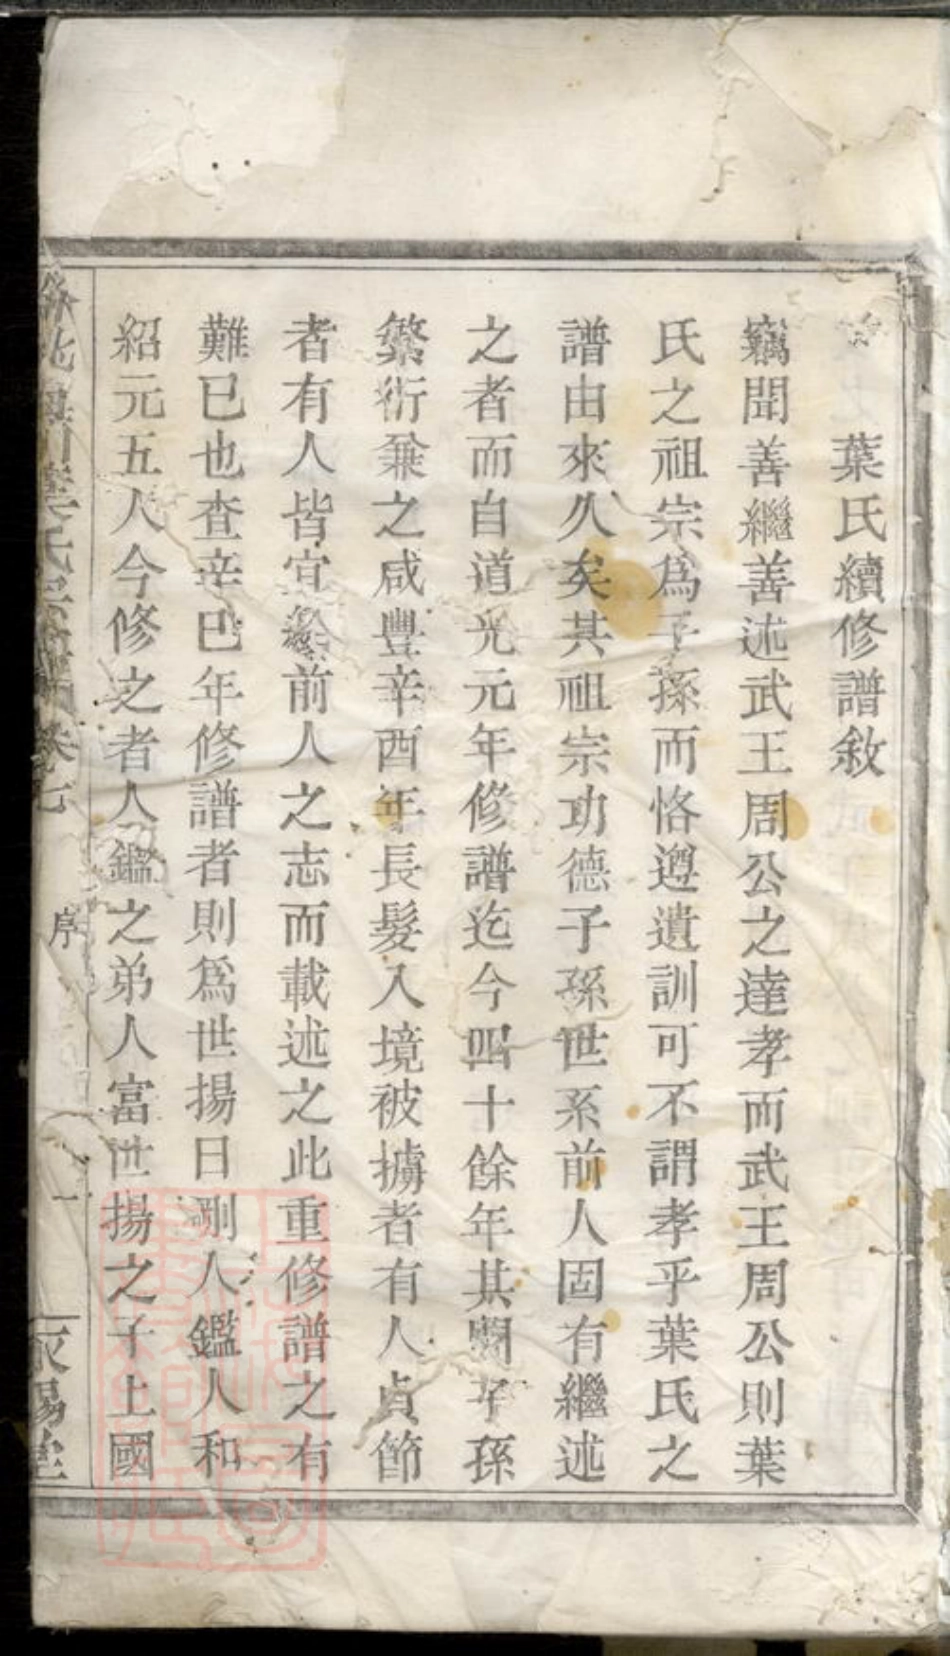 葉氏續修譜敘
竊聞善繼善述武王周公之達孝而武王周公則葉
氏之祖宗爲子孫而恪遵遺訓可不謂孝乎葉氏之
譜由來久矣其祖宗功德子孫世系前人固有繼述
之者而自道光元年修譜迄今四十餘年其間子孫
繁衍兼之咸豐辛酉年長髮入境被擄者有人貞節
者有人皆宜前人之志而載述之此重修譜之有
難已也查辛巳年修譜者則爲世揚曰剛人鑑人和
紹元五人今修之者人鑑之弟人富世揚之子士國
葉氏 卷七
序
一